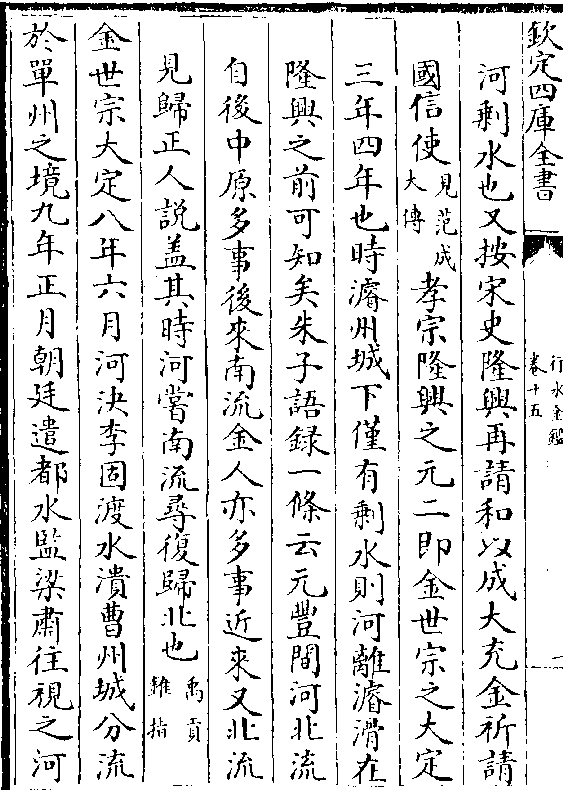 欽定四庫全書
行水金鑑
卷十五
河剩水也又按宋史隆興再請和以成大充金祈請
國信使見范成大傳孝宗隆興之元二即金世宗之大定
三年四年也時濬州城下僅有剩水則河離濬滑在
隆興之前可知矣朱子語録一條云元豐間河北流
自後中原多事後來南流金人亦多事近來又北流
見歸正人説盖其時河嘗南流尋復歸北也禹貢錐指
金世宗大定八年六月河決李固渡水潰曹州城分流
於單州之境九年正月朝廷遣都水監梁肅往視之河